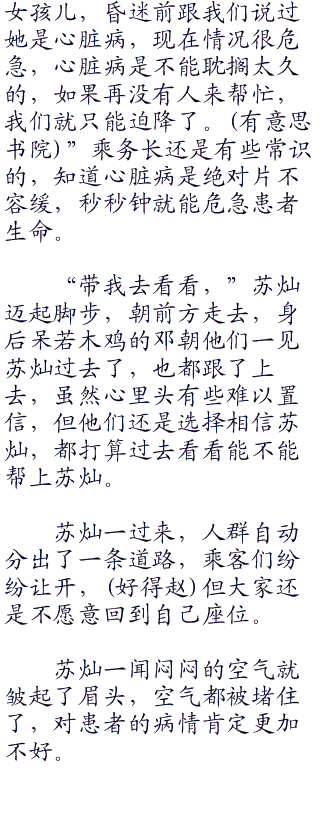 女孩儿，昏迷前跟我们说过
她是心脏病，现在情况很危
急，心脏病是不能耽搁太久
的，如果再没有人来帮忙，
我们就只能迫降了。(有意思
书院)”乘务长还是有些常识
的，知道心脏病是绝对片不
容缓，秒秒钟就能危急患者
生命。
“带我去看看，”苏灿
迈起脚步，朝前方走去，身
后呆若木鸡的邓朝他们一见
苏灿过去了，也都跟了上
去，虽然心里头有些难以置
信，但他们还是选择相信苏
灿，都打算过去看看能不能
帮上苏灿。
苏灿一过来，人群自动
分出了一条道路，乘客们纷
纷让开，(好得赵)但大家还
是不愿意回到自己座位。
苏灿一闻闷闷的空气就
皱起了眉头，空气都被堵住
了，对患者的病情肯定更加
不好。